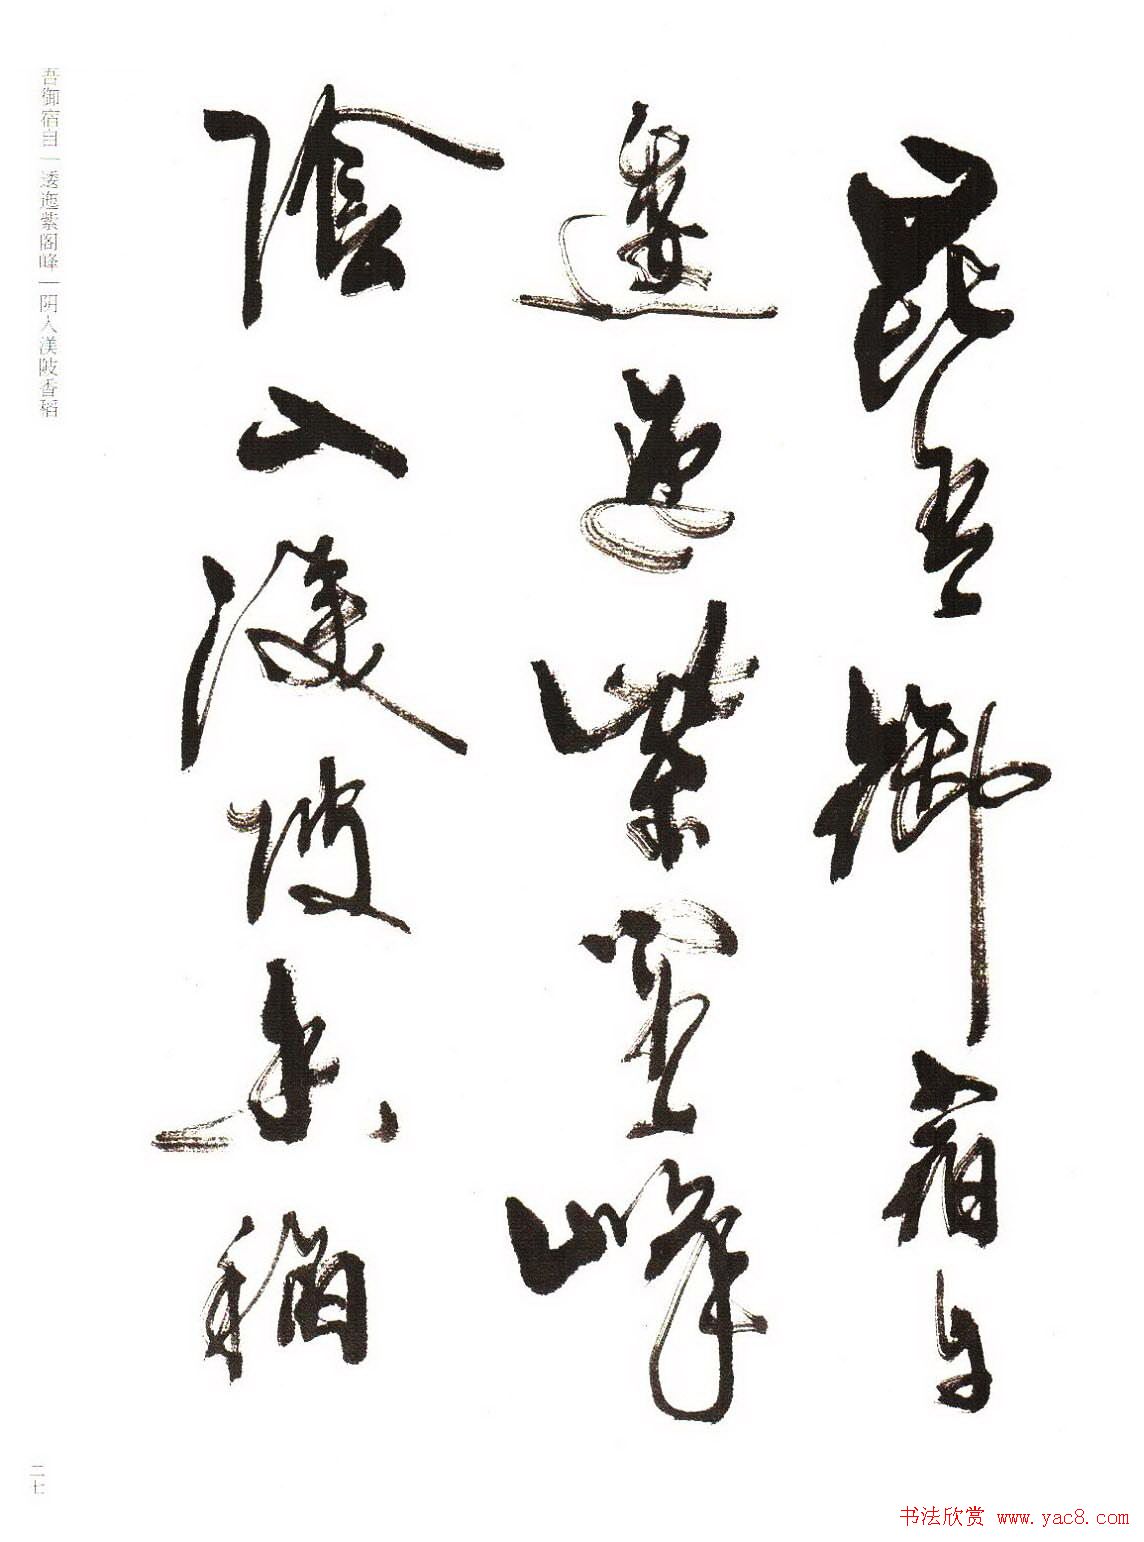 昆吾御宿自
逶迤紫阁峰
阴入渼陂香稻
吾御宿自｜逶迤紫阁峰｜阴入渼陂香稻
二七
书法欣赏 www.yac8.com